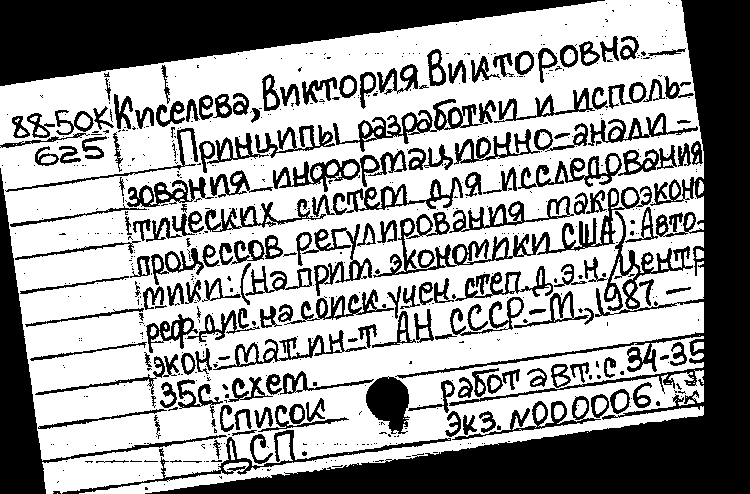 88-50К Киселева, Виктория Викторовна.
625 Принципы разработки и исполь-
зования информационно-анали-
тических систем для исследования
процессов регулирования макроэконо
мики: (на прим. экономики США): Авто-
реф. дис. на соиск. учен. степ. д.э.н. / Центр
экон.-мат. ин-т АН СССР.-М., 1987. —
35с.: схем.
Список работ авт.: с. 34-35
ДСП. Экз. N000006.